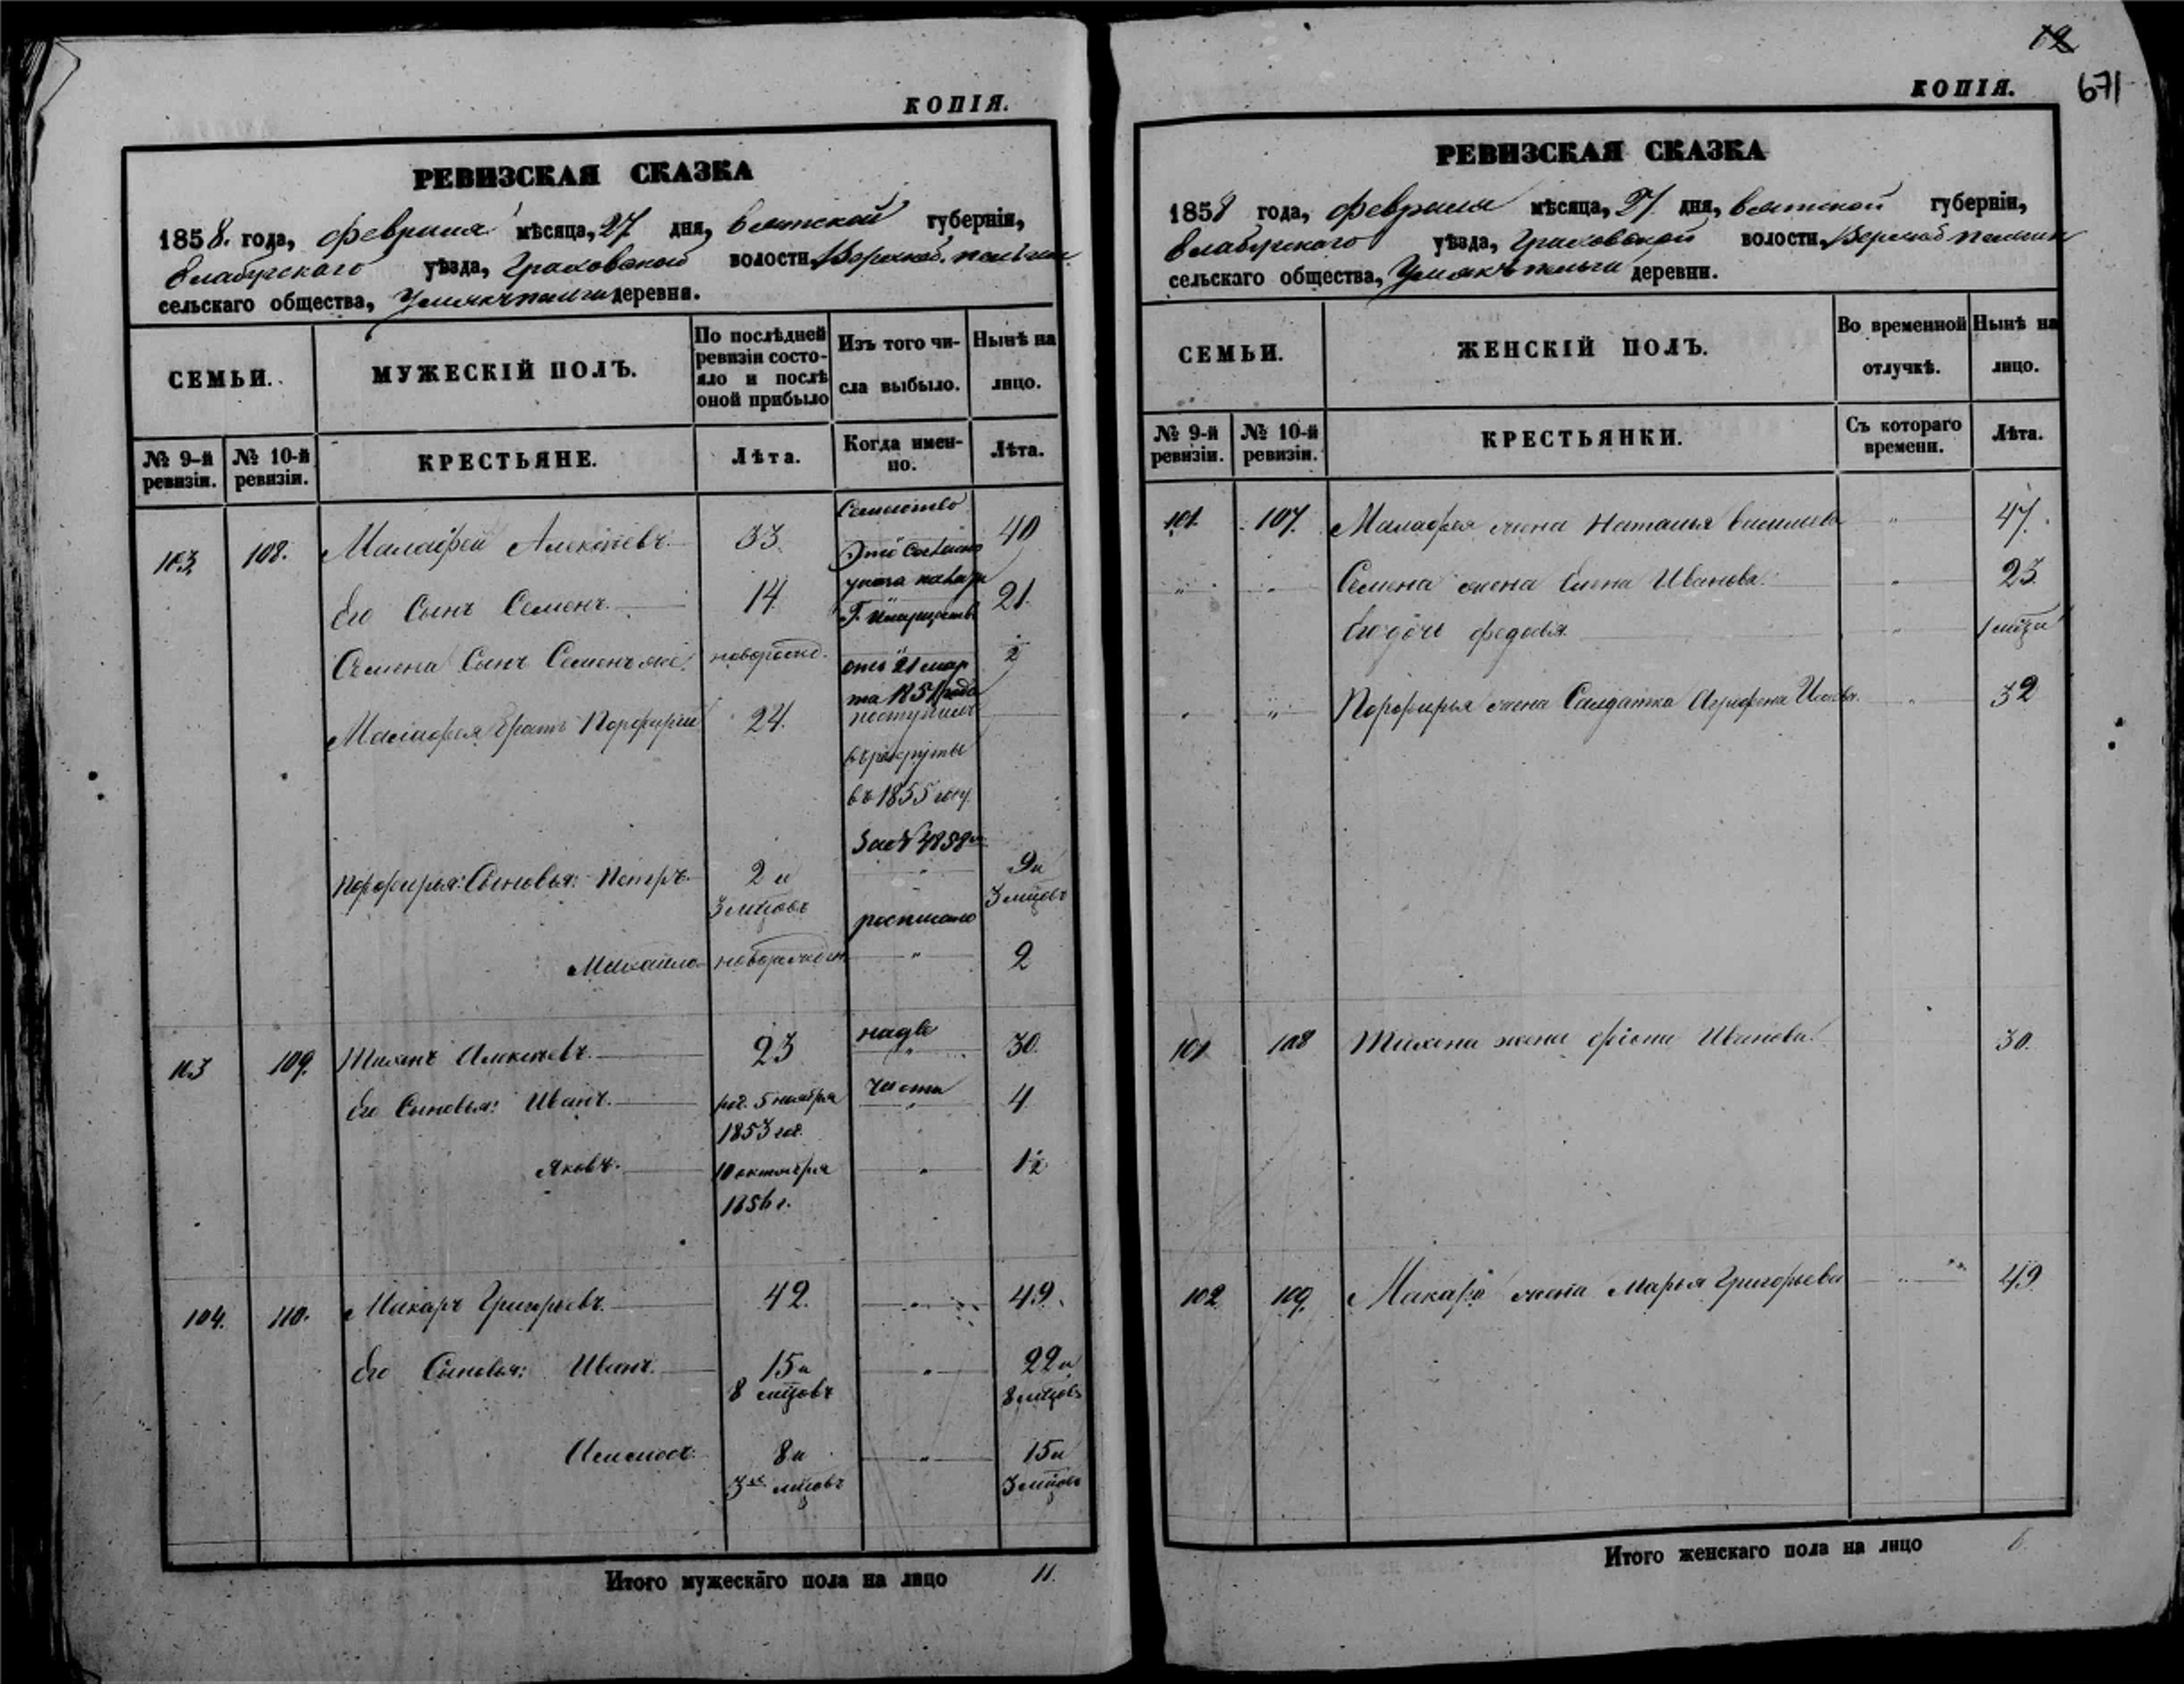 КОПІЯ.
РЕВИЗСКАЯ СКАЗКА
1858. года, февраля мѣсяца, 27 дня, Вятской губерніи,
Елабугскаго уѣзда, Граховской волости,
сельскаго общества, деревня.
СЕМЬИ. МУЖЕСКІЙ ПОЛЪ. По послѣдней ревизіи состояло и послѣ оной прибыло Изъ того числа выбыло. Нынѣ на лицо.
№ 9-й ревизіи. № 10-й ревизіи. КРЕСТЬЯНЕ. Лѣта. Когда именно. Лѣта.
Семейство
103 108. Малафей Алексѣевъ. 33. 40
Его Сынъ Семенъ. 14 21.
Семена Сынъ Семенъ же. новорожд. ½
отъ 21 мар
та 1851 года
Малафея братъ Порфирий 24. поступилъ
въ рекруты
въ 1855 году.
Порфирья: Сыновья: Петръ. 2 и 9 и
3 мцовъ 3 мцовъ
росписано
Михайло новорожден " 2
на две
103 109. Тихонъ Алексѣевъ. 23 " 30.
части
Его Сыновья: Иванъ. рож. 5 ноября " 4
1853 год.
Яковъ. 10 октября " 1½
1856 г.
104. 110. Макаръ Григорьевъ. 42. " 49.
Его Сыновья: Иванъ. 15 и " 22 и
8 мцовъ 8 мцовъ
8 и " 15 и
3хъ мцовъ 3 мцовъ
Итого мужескаго пола на лицо 11.
12
671
КОПІЯ.
РЕВИЗСКАЯ СКАЗКА
1858 года, февраля мѣсяца, 27. дня, Вятской губерніи,
Елабугскаго уѣзда, Граховской волости,
сельскаго общества, деревни.
СЕМЬИ. ЖЕНСКІЙ ПОЛЪ. Во временной отлучкѣ. Нынѣ на лицо.
№ 9-й ревизіи. № 10-й ревизіи. КРЕСТЬЯНКИ. Съ котораго времени. Лѣта.
101. 107. Малафея жена Наталья Васильева " 47.
" " Семена жена Елена Иванова. " 23.
Его дочь Федосья. "
" " Порфирья жена Салдатка Агрифена " 32
101 108 Тихона жена Иванова. 30.
102 109. Макара жена Марья Григорьева " 49
Итого женскаго пола на лицо 6.